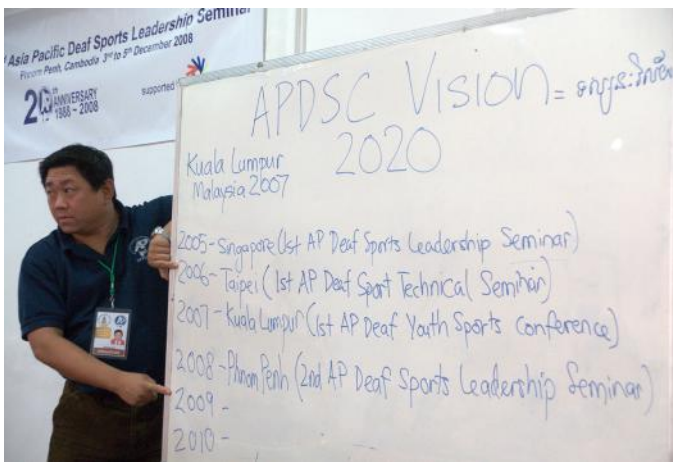 Asia Pacific Deaf Sports Leadership Seminar
Phnom Penh, Cambodia 3rd to 5th December 2008
20th ANNIVERSARY
1988 - 2008
supported
APDSC VISION = ទស្សនៈវិស័យ
2020
Kuala Lumpur
Malaysia 2007
2005 - Singapore (1st AP Deaf Sports Leadership Seminar)
2006 - Taipei (1st AP Deaf Sport Technical Seminar)
2007 - Kuala Lumpur (1st AP Deaf Youth Sports Conference)
2008 - Phnom Penh (2nd AP Deaf Sports Leadership Seminar)
2009 -
2010 -